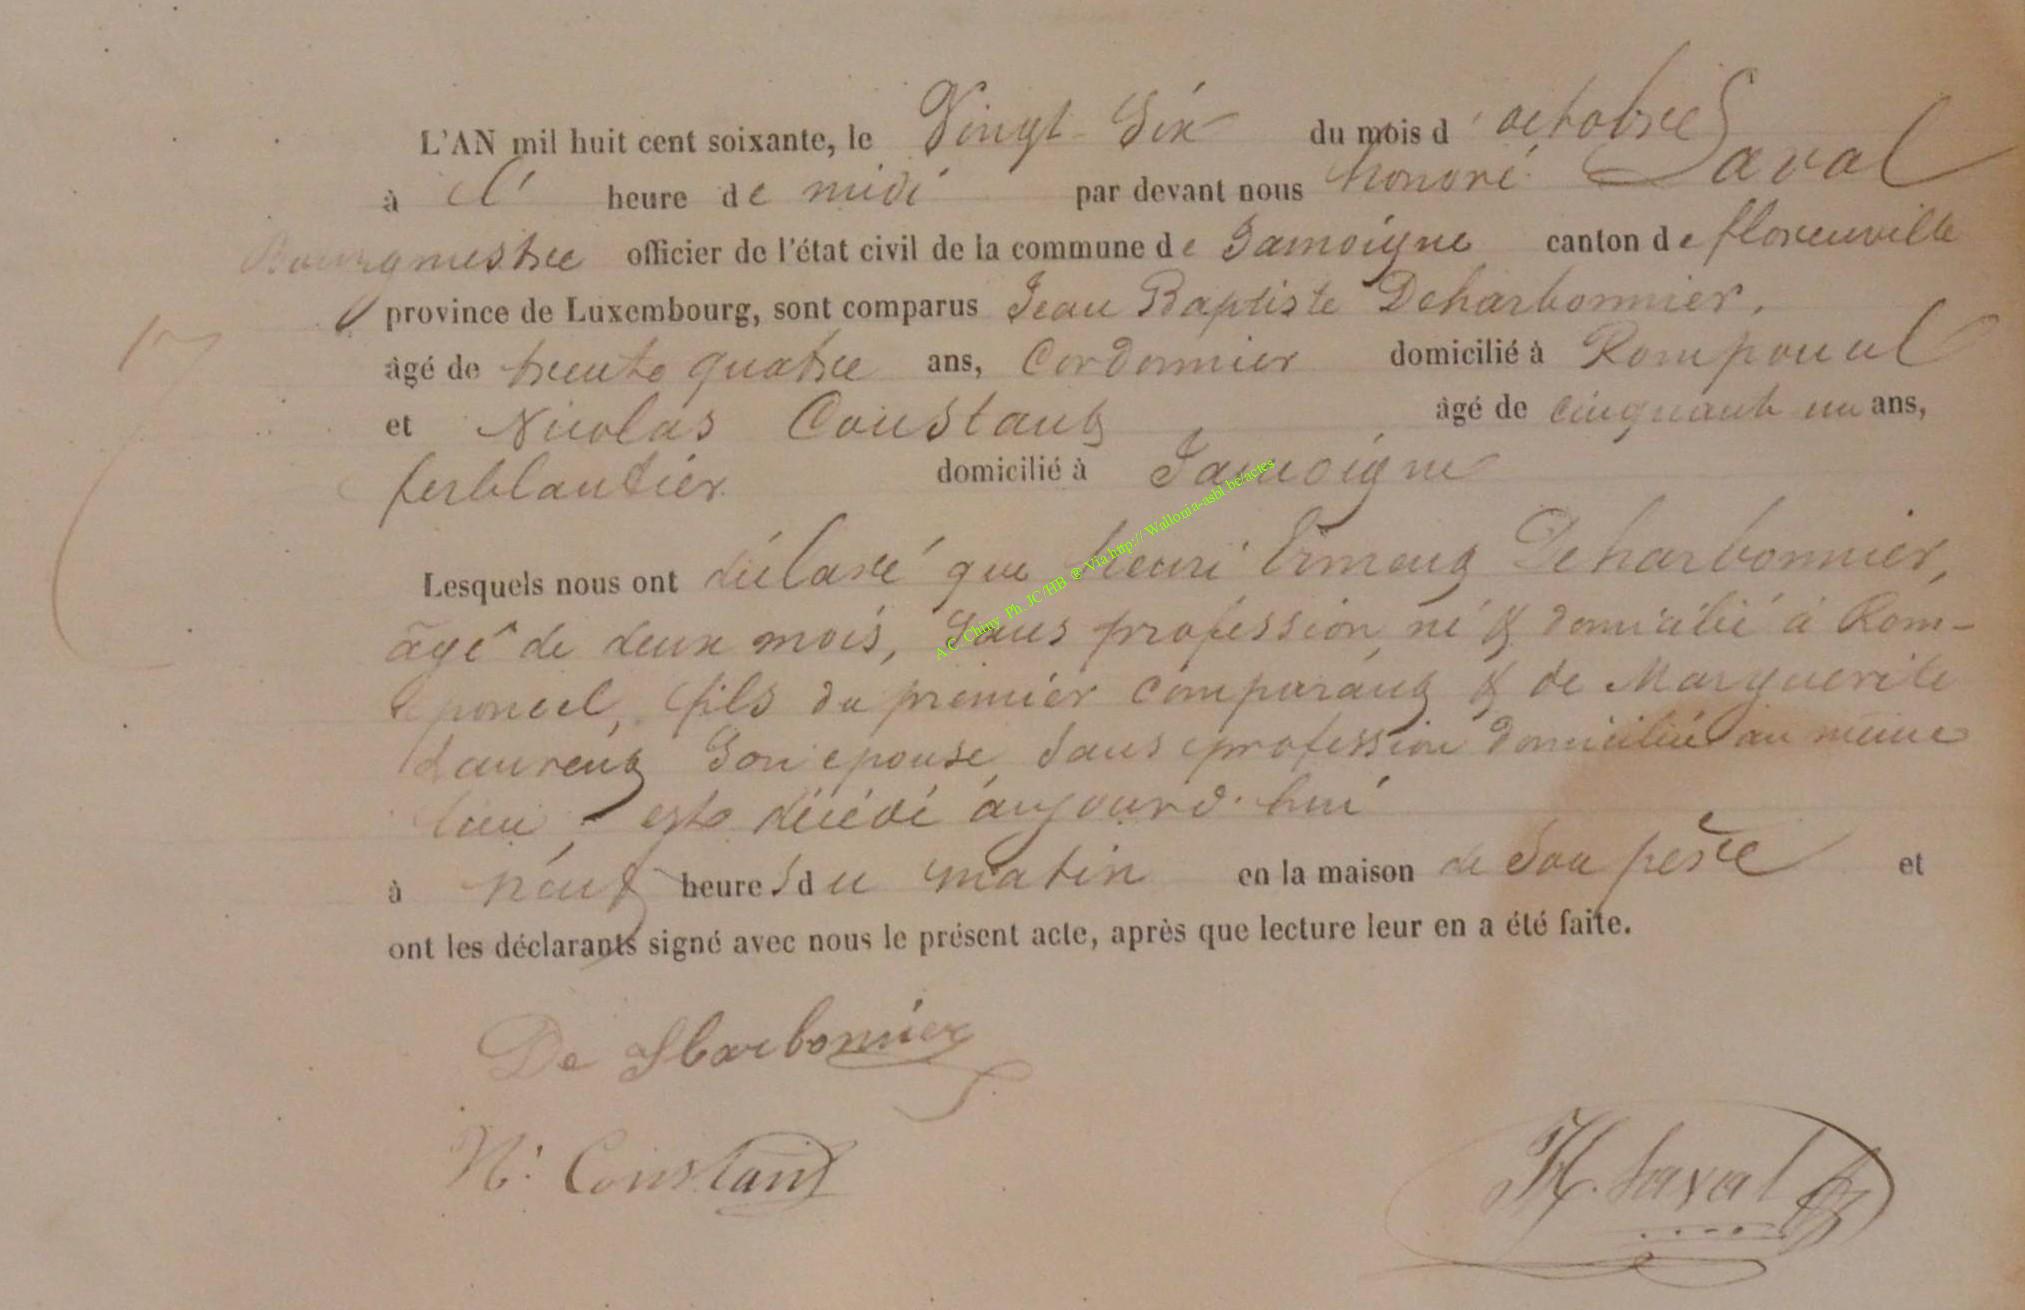 L'AN mil huit cent soixante, le Vingt-Six du mois d'octobre
à l' heure de midi par devant nous honoré Laval
Bourgmestre officier de l'état civil de la commune de Jamoigne canton de florenville
province de Luxembourg, sont comparus Jean Baptiste Deharbonnier,
âgé de trente quatre ans, Cordonnier domicilié à Romponcel
et Nicolas Constant âgé de cinquante un ans,
ferblantier domicilié à Jamoigne
Lesquels nous ont déclaré que henri Deharbonnier,
âgé de deux mois, Sans profession, né & domicilié à Rom-
poncel, fils du premier comparant & de Marguerite
Laurent Son epouse, Sans profession domiciliée au même
lieu, est décédé aujourd'hui
à neuf heures du matin en la maison de Son père et
ont les déclarants signé avec nous le présent acte, après que lecture leur en a été faite.
De Harbonnier
N. Constant
H. Laval
A.C. Chiny Ph. JC/HB @ Via http://Wallonia-asbl.be/actes